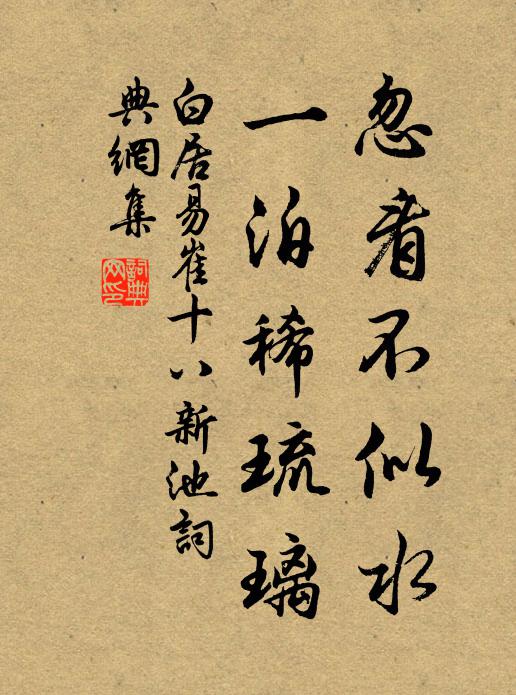 忽看不似水
一泊稀琉璃
白居易崔十八新池詞
典網集
詞典网印